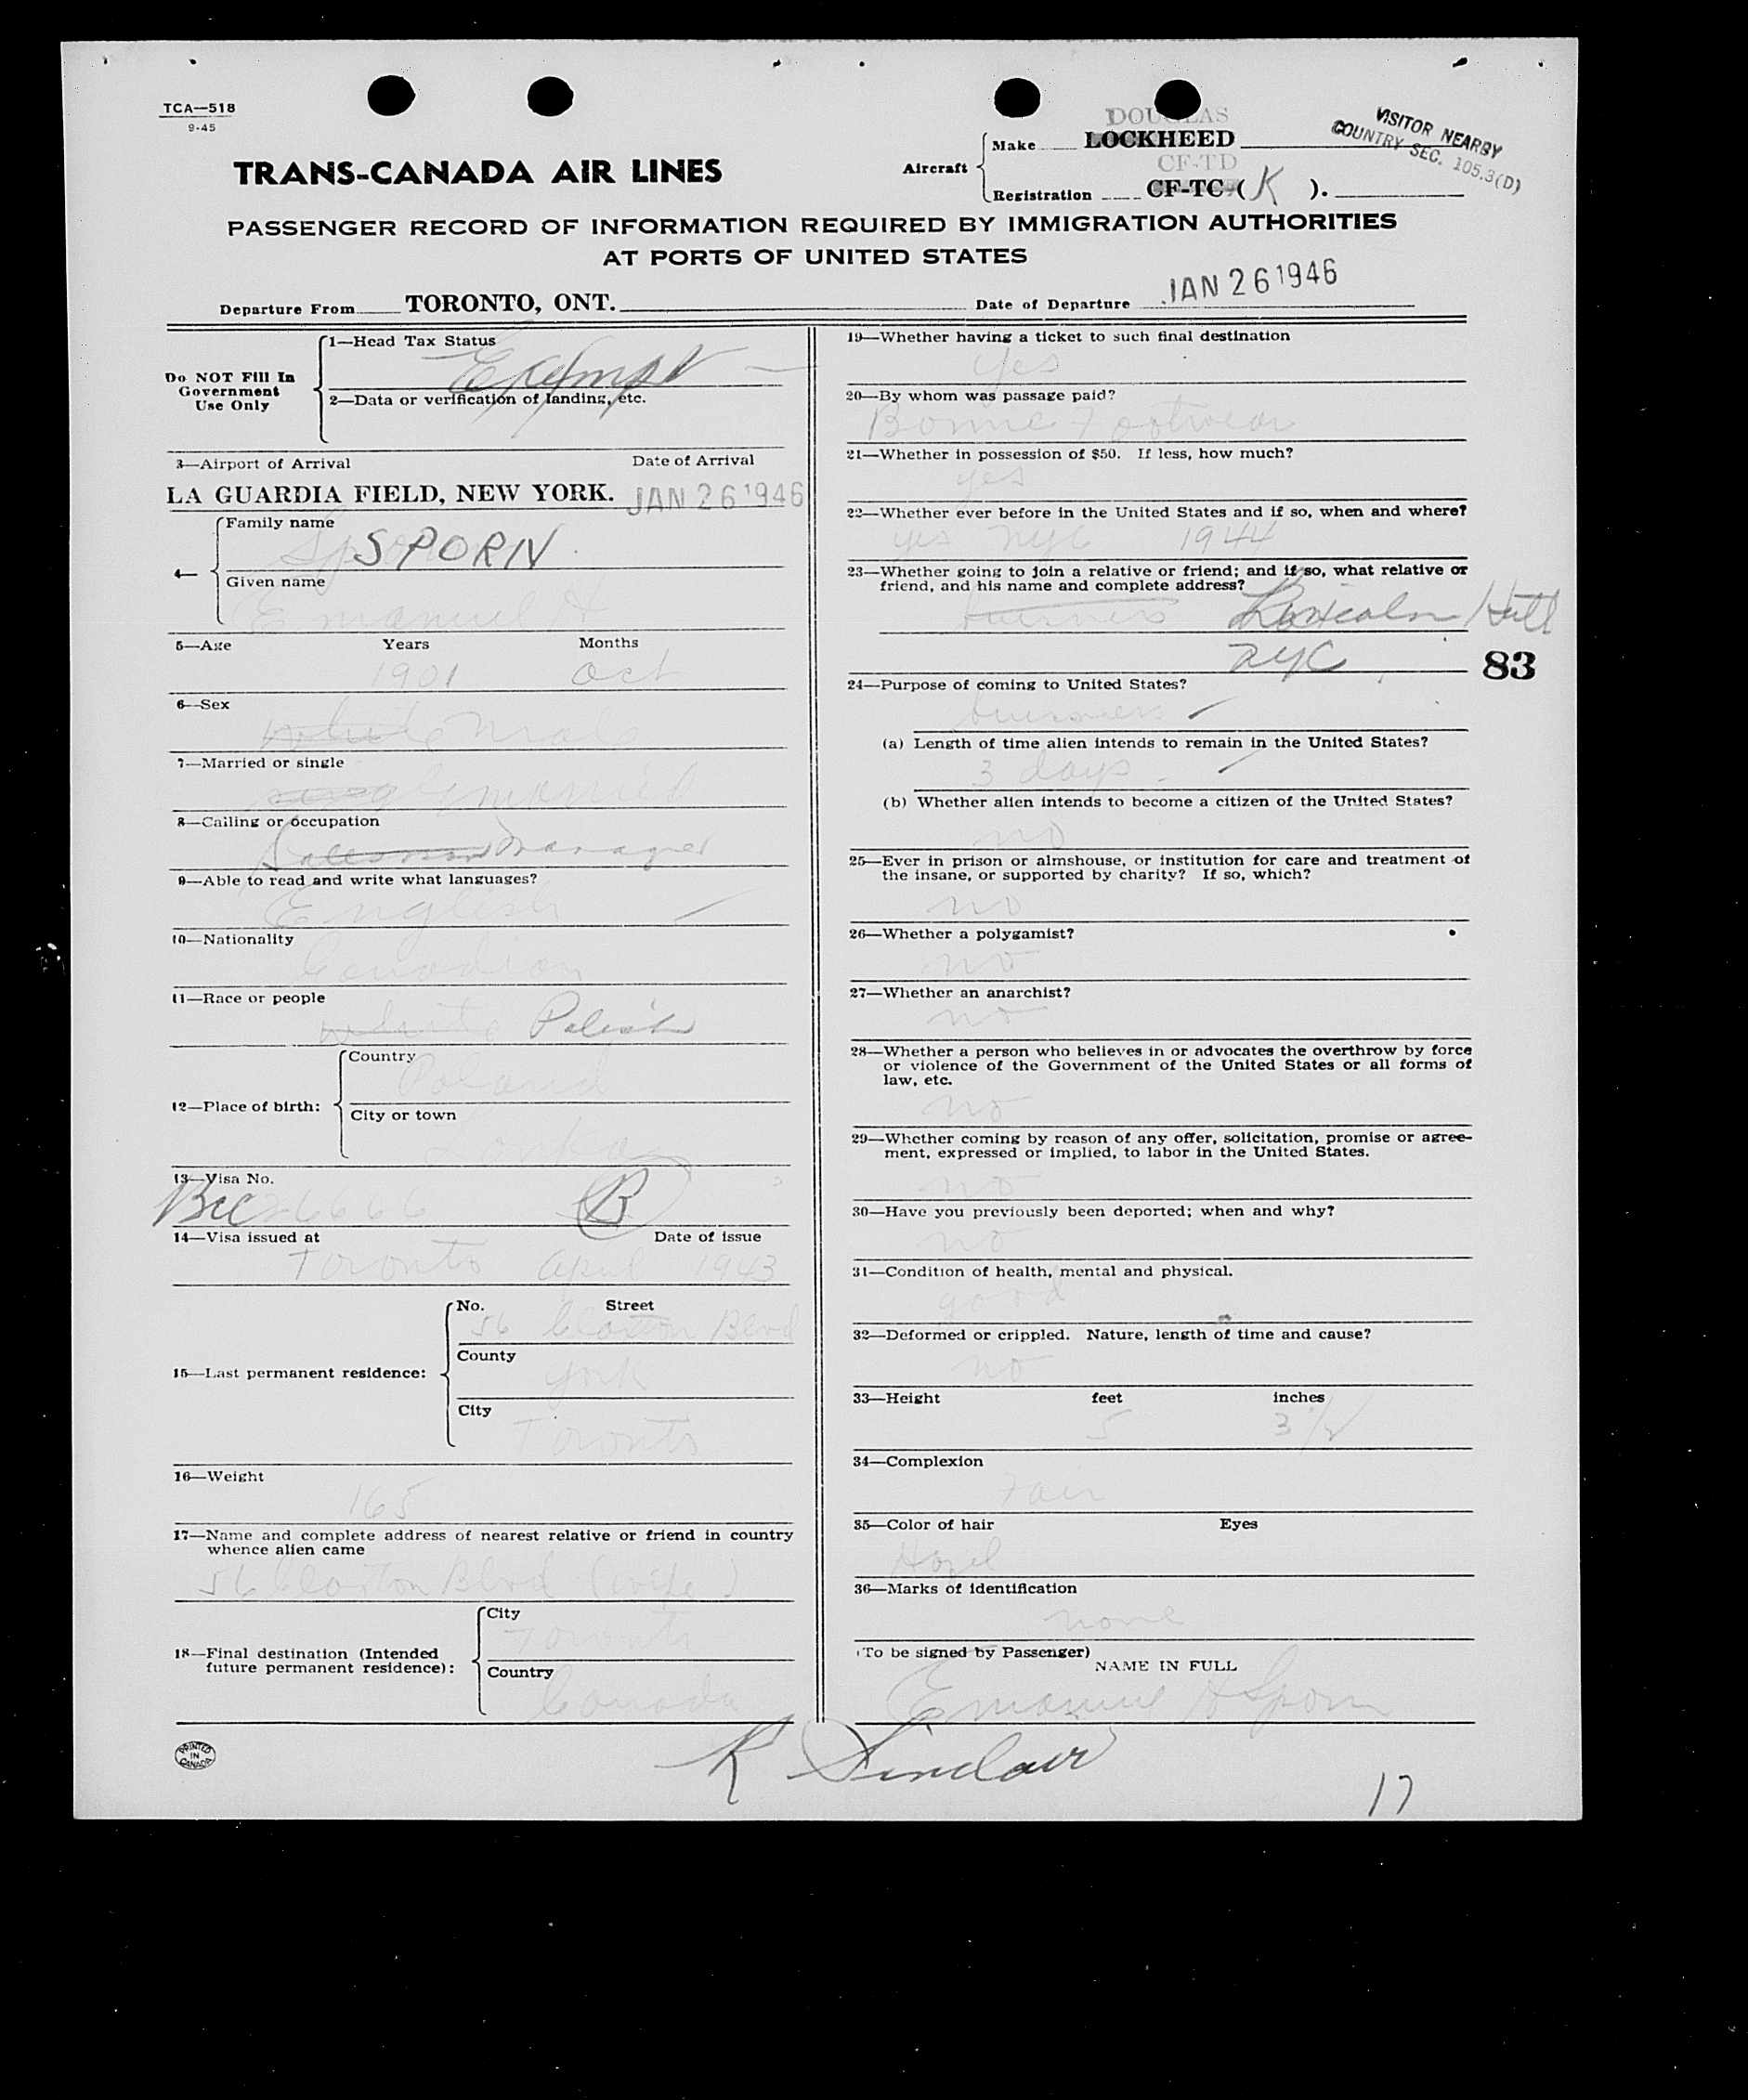 TCA—518
9-45
TRANS-CANADA AIR LINES
Aircraft
DOUGLAS
Make LOCKHEED
CF-TD
Registration CF-TC-( K ).
VISITOR NEARBY
COUNTRY SEC. 105.3(D)
PASSENGER RECORD OF INFORMATION REQUIRED BY IMMIGRATION AUTHORITIES
AT PORTS OF UNITED STATES
Departure From TORONTO, ONT. Date of Departure JAN 26 1946
Do NOT Fill In
Government
Use Only
1—Head Tax Status
Exempt
2—Data or verification of landing, etc.
3—Airport of Arrival Date of Arrival
LA GUARDIA FIELD, NEW YORK. JAN 26 1946
4—
Family name
SPORN
Given name
Emanuel H
5—Age Years Months
1901 Oct
6—Sex
white Male
7—Married or single
single married
8—Calling or occupation
Salesman Manager
9—Able to read and write what languages?
English
10—Nationality
Canadian
11—Race or people
white Polish
12—Place of birth:
Country
Poland
City or town
13—Visa No.
Bcc 26666 B
14—Visa issued at Date of issue
Toronto April 1943
15—Last permanent residence:
No. Street
56 Claxton Blvd
County
York
City
Toronto
16—Weight
165
17—Name and complete address of nearest relative or friend in country
whence alien came
56 Claxton Blvd (wife)
18—Final destination (Intended
future permanent residence):
City
Toronto
Country
Canada
19—Whether having a ticket to such final destination
yes
20—By whom was passage paid?
Bonnie Footwear
21—Whether in possession of $50. If less, how much?
yes
22—Whether ever before in the United States and if so, when and where?
yes NYC 1944
23—Whether going to join a relative or friend; and if so, what relative or
friend, and his name and complete address?
business Lincoln Hotl
NYC
83
24—Purpose of coming to United States?
business
(a) Length of time alien intends to remain in the United States?
3 days
(b) Whether alien intends to become a citizen of the United States?
no
25—Ever in prison or almshouse, or institution for care and treatment of
the insane, or supported by charity? If so, which?
no
26—Whether a polygamist?
no
27—Whether an anarchist?
no
28—Whether a person who believes in or advocates the overthrow by force
or violence of the Government of the United States or all forms of
law, etc.
no
29—Whether coming by reason of any offer, solicitation, promise or agree-
ment, expressed or implied, to labor in the United States.
no
30—Have you previously been deported; when and why?
no
31—Condition of health, mental and physical.
good
32—Deformed or crippled. Nature, length of time and cause?
no
33—Height feet inches
5 3 1/2
34—Complexion
Fair
35—Color of hair Eyes
Hazel
36—Marks of identification
none
(To be signed by Passenger)
NAME IN FULL
Emanuel H Sporn
PRINTED
IN
CANADA
R Sinclair
17